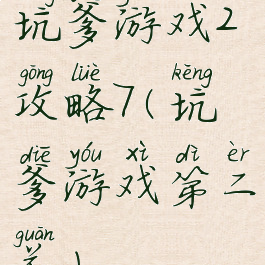 坑爹游戏2
gōng lüè kēng
攻略7(坑
diē yóu xì dì èr
爹游戏第二
guān
关)